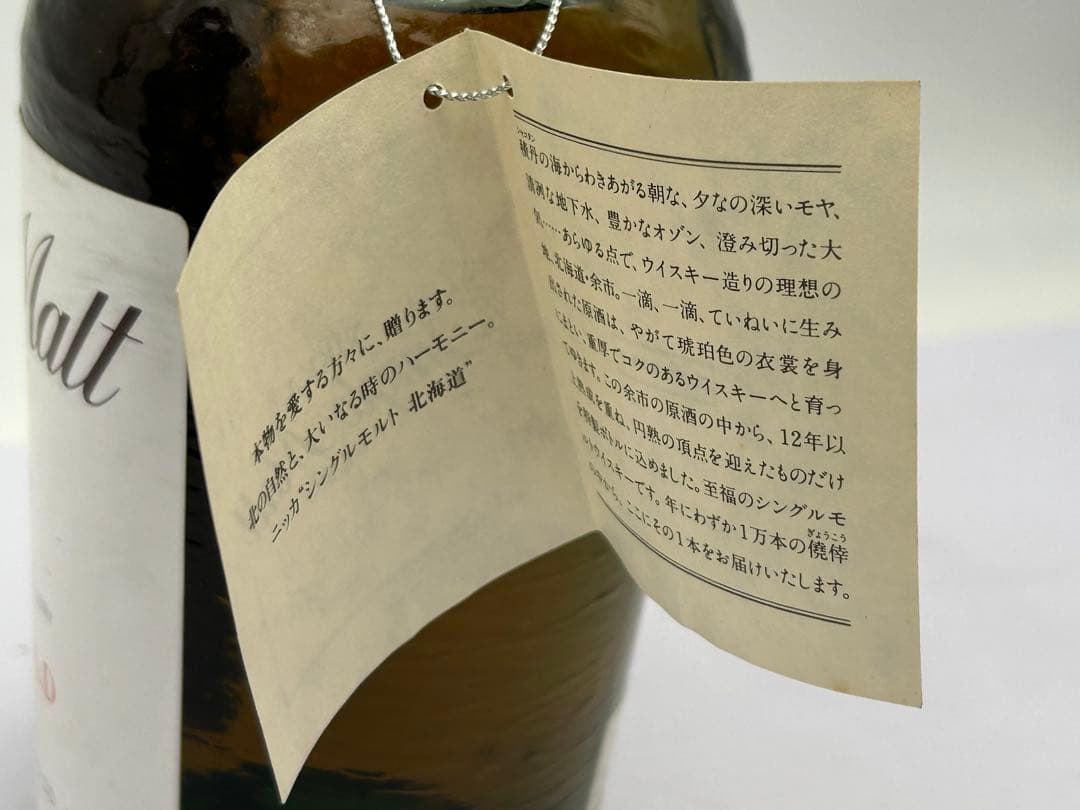 Malt
本物を愛する方々に、贈ります。
北の自然と、大いなる時のハーモニー。
ニッカ“シングルモルト 北海道”
シャコタン
積丹の海からわきあがる朝な、夕なの深いモヤ、
清冽な地下水、豊かなオゾン、澄み切った大
気……あらゆる点で、ウイスキー造りの理想の
地、北海道・余市。一滴、一滴、ていねいに生み
出された原酒は、やがて琥珀色の衣裳を身
にまとい、重厚でコクのあるウイスキーへと育っ
てゆきます。この余市の原酒の中から、12年以
上熟成を重ね、円熟の頂点を迎えたものだけ
を特製ボトルに込めました。至福のシングルモ
ルトウイスキーです。年にわずか1万本の僥倖
ぎょうこう
の中から、ここにその1本をお届けいたします。